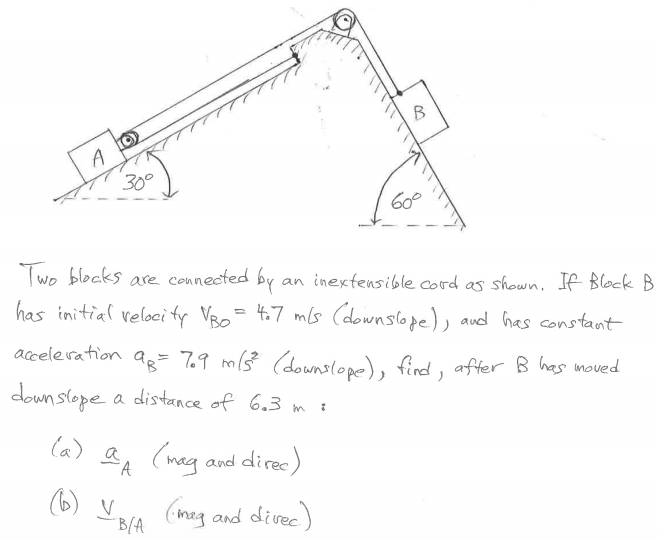 A
B
30°
60°
Two blocks are connected by an inextensible cord as shown. If Block B
has initial velocity V_BO = 4.7 m/s (downslope), and has constant
acceleration a_B = 7.9 m/s² (downslope), find, after B has moved
downslope a distance of 6.3 m :
(a) a_A (mag and direc)
(b) V_B/A (mag and direc)